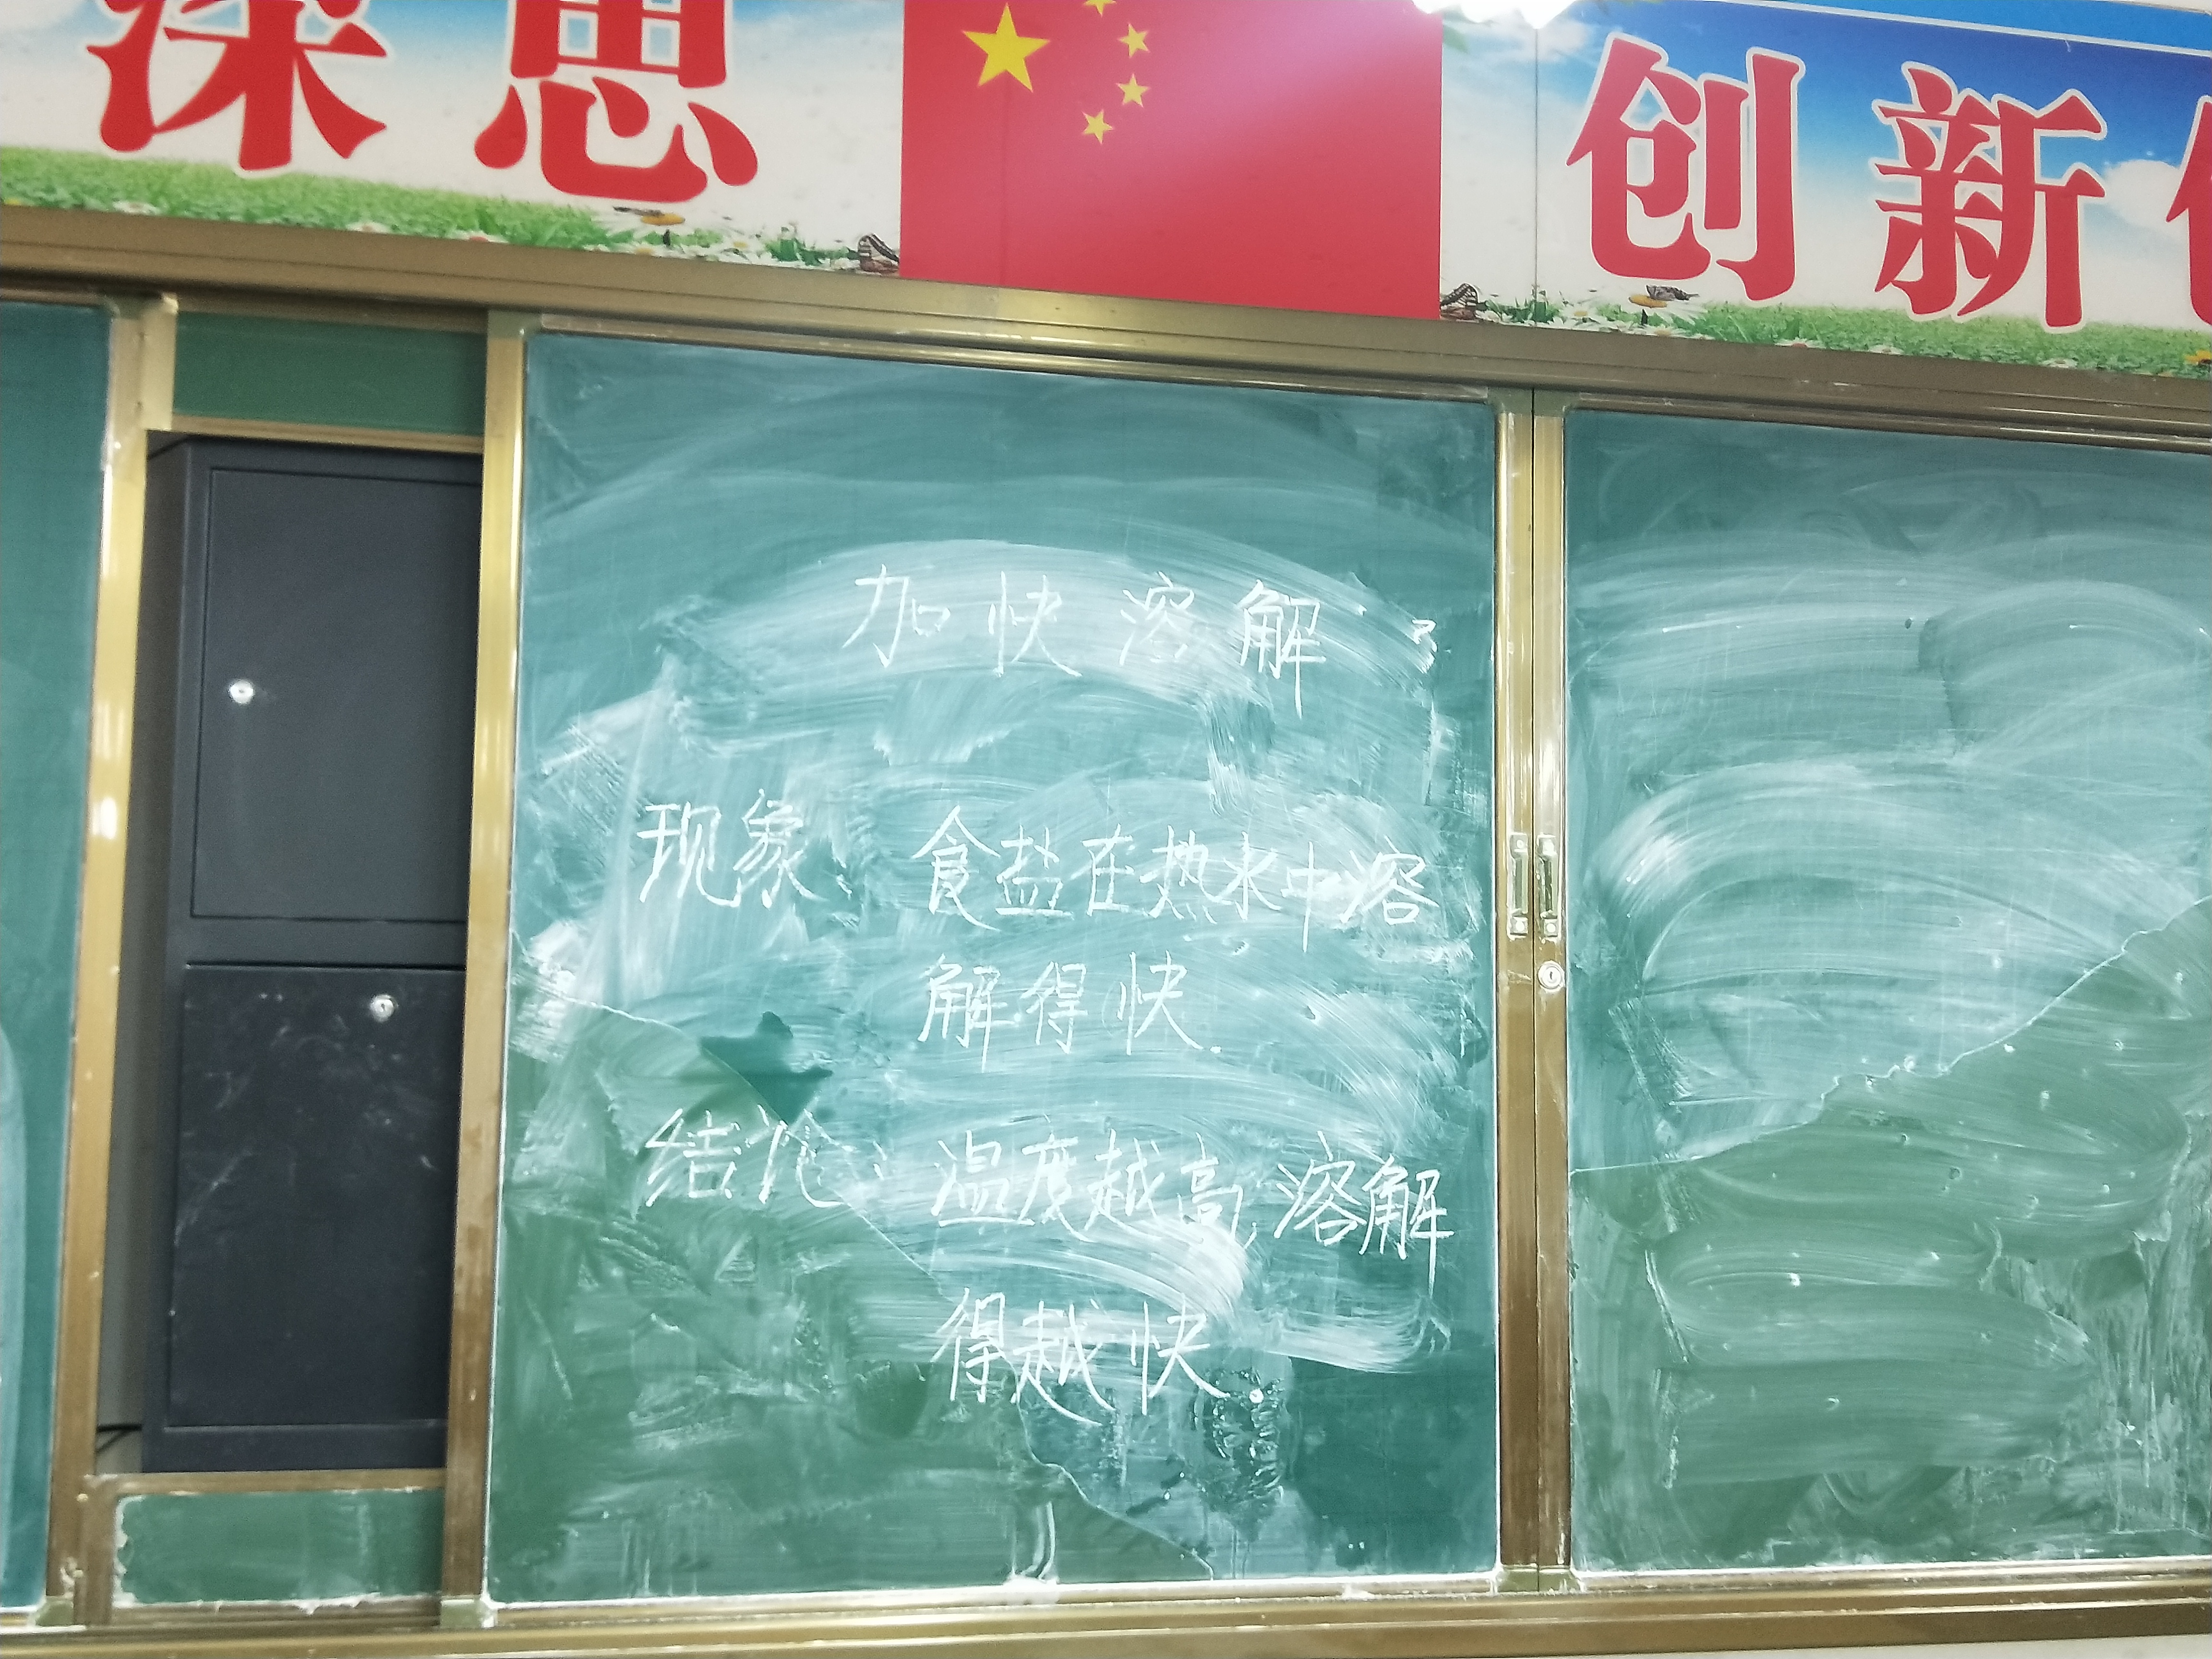 深思 创新
加快溶解
现象: 食盐在热水中溶
解得快.
结论: 温度越高, 溶解
得越快.